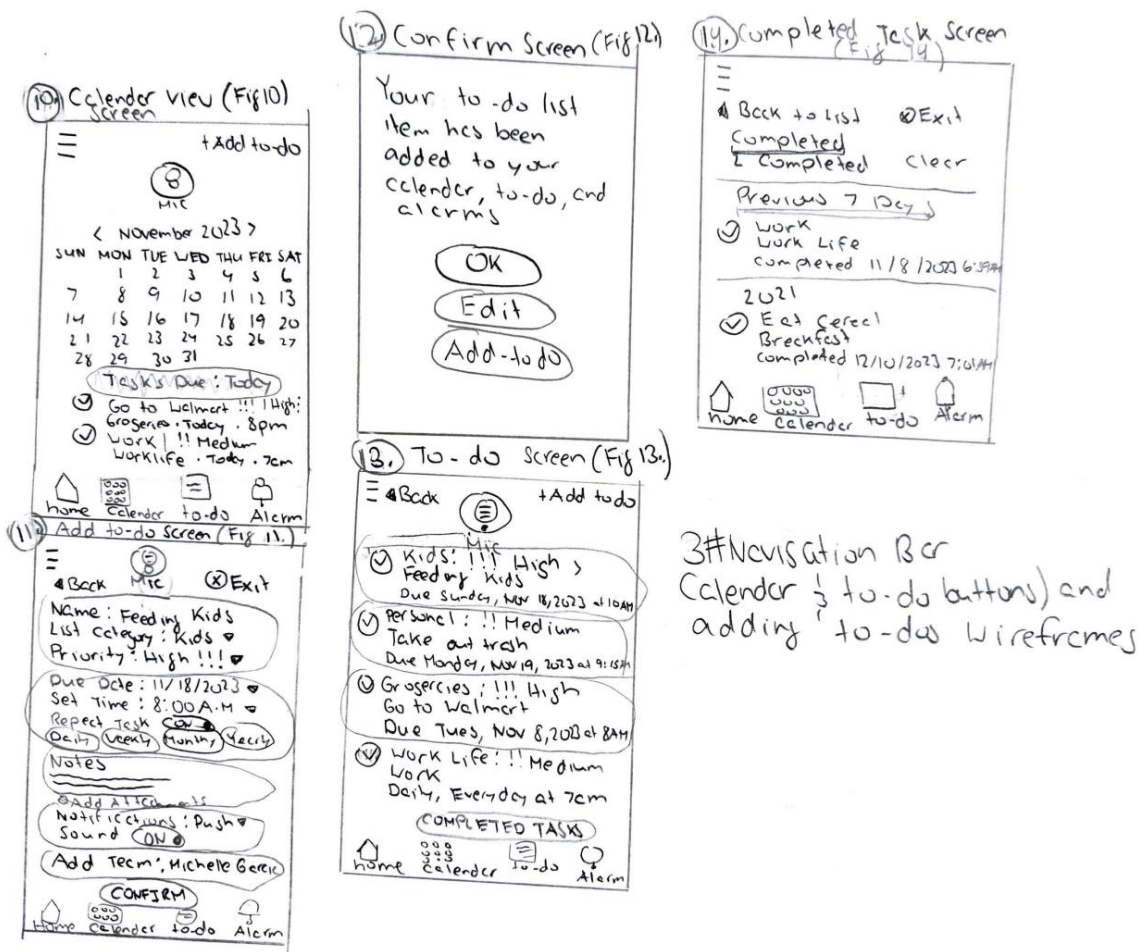 10. Calender view (Fig 10)
Screen
+Add to-do
Mic
< November 2023 >
SUN MON TUE WED THU FRI SAT
1 2 3 4 5 6
7 8 9 10 11 12 13
14 15 16 17 18 19 20
21 22 23 24 25 26 27
28 29 30 31
Tasks Due: Today
Go to Walmart !!! | High:
Groseries . Today . 8pm
Work | !! Medium
Worklife . Today . 7am
home Calender to-do Alarm
11. Add to-do Screen (Fig 11.)
Back Mic Exit
Name: Feeding Kids
List Category: Kids
Priority: High !!!
Due Date: 11/18/2023
Set Time: 8:00 A.M
Repeat Task ON
Daily Weekly Monthly Yearly
Notes
Add Attachments
Notifications: Push
Sound ON
Add Team: Michelle Garcia
CONFIRM
Home Calender to-do Alarm
12. Confirm Screen (Fig 12.)
Your to-do list
item has been
added to your
calender, to-do, and
alarms
OK
Edit
Add-to do
13. To-do Screen (Fig 13.)
Back +Add to do
Mic
Kids: !!! High >
Feeding Kids
Due Sunday, Nov 18, 2023 at 10AM
Personal: !! Medium
Take out trash
Due Monday, Nov 19, 2023 at 9:15AM
Grosercies: !!! High
Go to Walmart
Due Tues, Nov 8, 2023 at 8AM
Work Life: !! Medium
Work
Daily, Everyday at 7am
COMPLETED TASKS
home Calender to-do Alarm
14. Completed Task Screen
(Fig 14)
Back to List Exit
Completed
2 Completed Clear
Previous 7 Days
Work
Work Life
Completed 11/8/2023 6:59AM
2021
Eat Cereal
Breckfast
Completed 12/10/2023 7:01AM
home Calender to-do Alarm
3#Navigation Bar
Calendar & to-do buttons) and
adding to-dos Wireframes